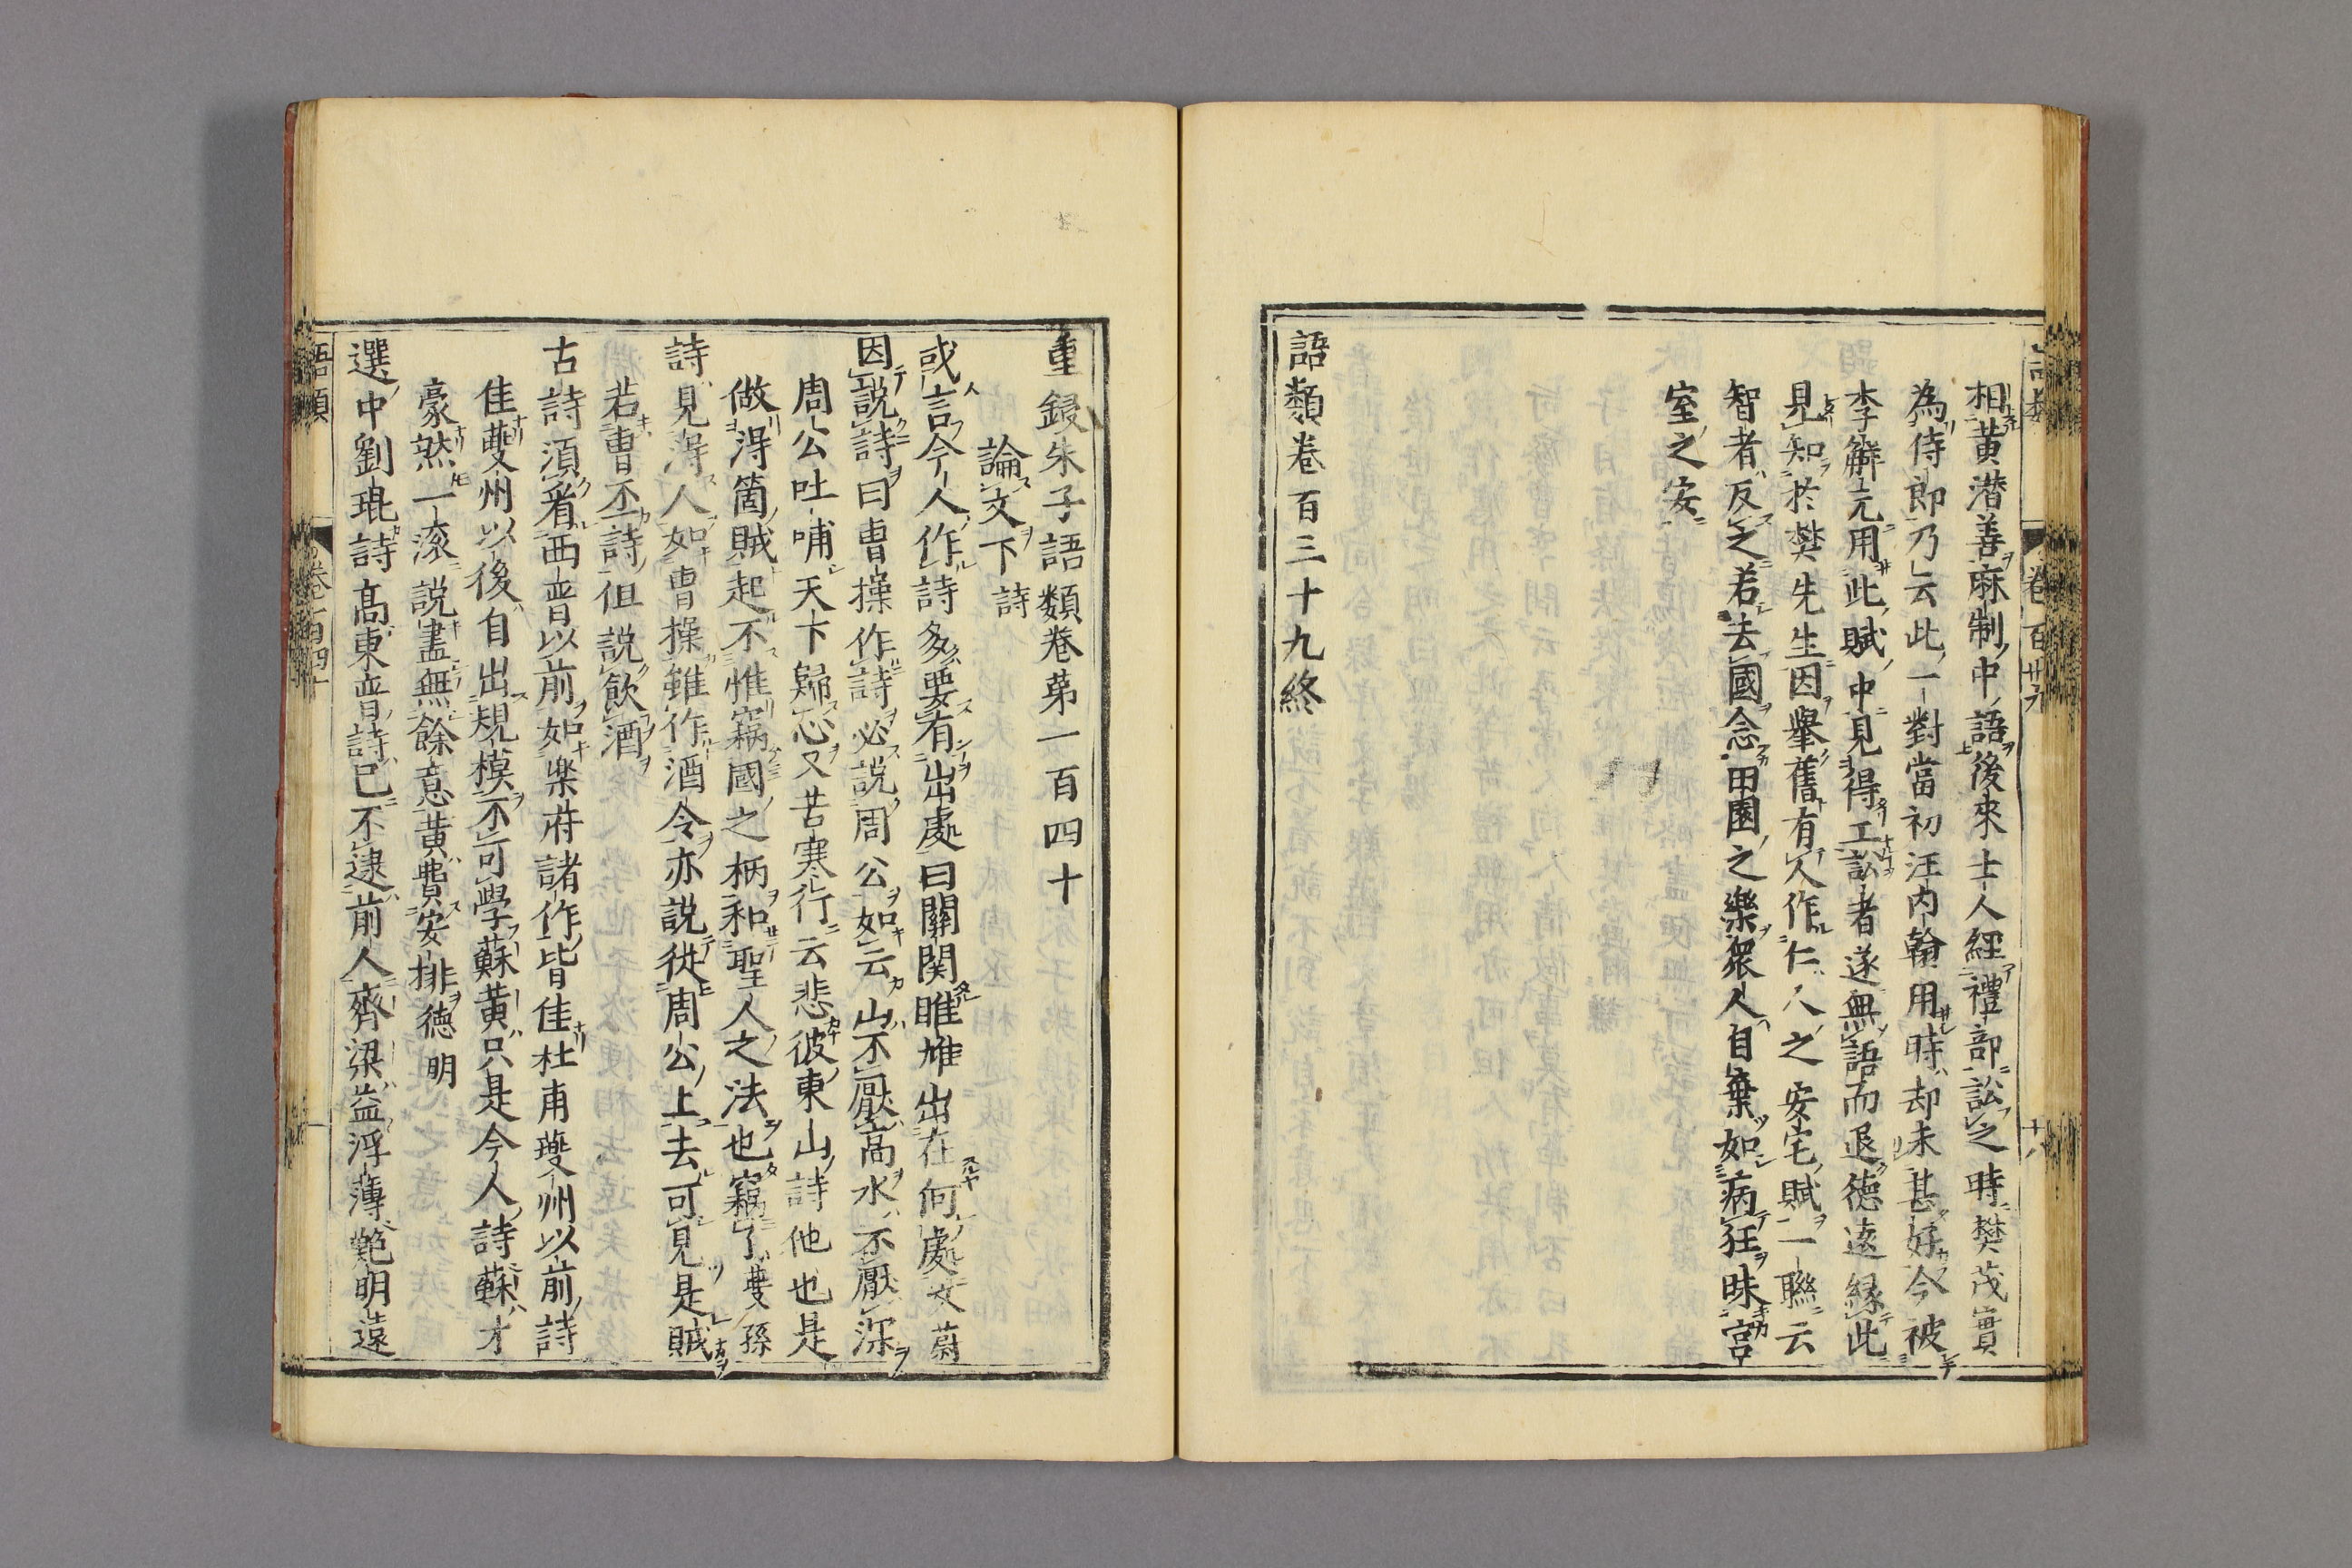 相黃潜善麻制中語後來士人經禮部訟之時樊茂實
為侍郎乃云此一對當初汪內翰用時却未甚好今被
李解元用此賦中見得工訟者遂無語而退德遠緣此
見知於樊先生因擧舊有人作仁人之安宅賦一聯云
智者反之若去國念田園之樂衆人自棄如病狂昧宮
室之安
語類卷百三十九終
重鋟朱子語類卷第一百四十
論文下 詩
或言今人作詩多要有出處曰關關雎鳩出在何處文蔚
因說詩曰曹操作詩必說周公如云山不厭高水不厭深
周公吐哺天下歸心又苦寒行云悲彼東山詩他也是
做得箇賊起不惟竊國之柄和聖人之法也竊了夔孫
詩見得人如曹操雖作酒令亦說從周公上去可見是賊
若曹丕詩但說飲酒
古詩須看西晉以前如樂府諸作皆佳杜甫夔州以前詩
佳夔州以後自出規模不可學蘇黃只是今人詩蘇才
豪然一滾說盡無餘意黃費安排德明
選中劉琨詩高東晉詩已不逮前人齊梁益浮薄鮑明遠
語類 卷一百四十 一